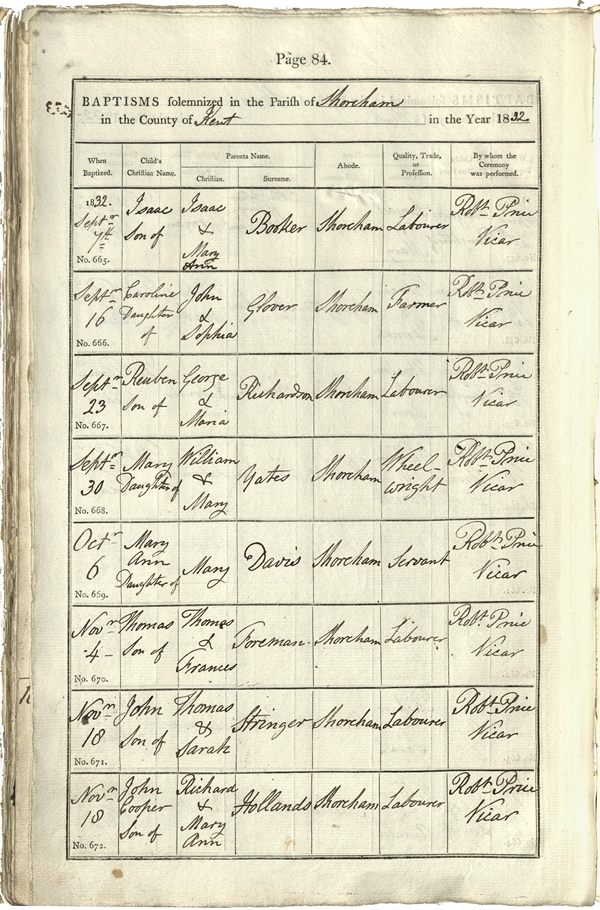 Page 84.
BAPTISMS solemnized in the Parish of Shoreham
in the County of Kent in the Year 1832
When Baptized. Child's Christian Name. Parents Name. Abode. Quality, Trade, or Profession. By whom the Ceremony was performed.
Christian. Surname.
1832. Septr 7th Isaac Son of Isaac & Mary Ann Booker Shoreham Labourer Robt. Price Vicar
No. 665.
Septr 16 Caroline Daughter of John & Sophia Glover Shoreham Farmer Robt. Price Vicar
No. 666.
Septr 23 Reuben Son of George & Maria Richardson Shoreham Labourer Robt. Price Vicar
No. 667.
Septr 30 Mary Daughter of William & Mary Yates Shoreham Wheel-wright Robt. Price Vicar
No. 668.
Octr 6 Mary Ann Daughter of Mary Davis Shoreham Servant Robt. Price Vicar
No. 669.
Novr 4 Thomas Son of Thomas & Frances Foreman Shoreham Labourer Robt. Price Vicar
No. 670.
Novr 18 John Son of Thomas & Sarah Stringer Shoreham Labourer Robt. Price Vicar
No. 671.
Novr 18 John Cooper Son of Richard & Mary Ann Hollands Shoreham Labourer Robt. Price Vicar
No. 672.